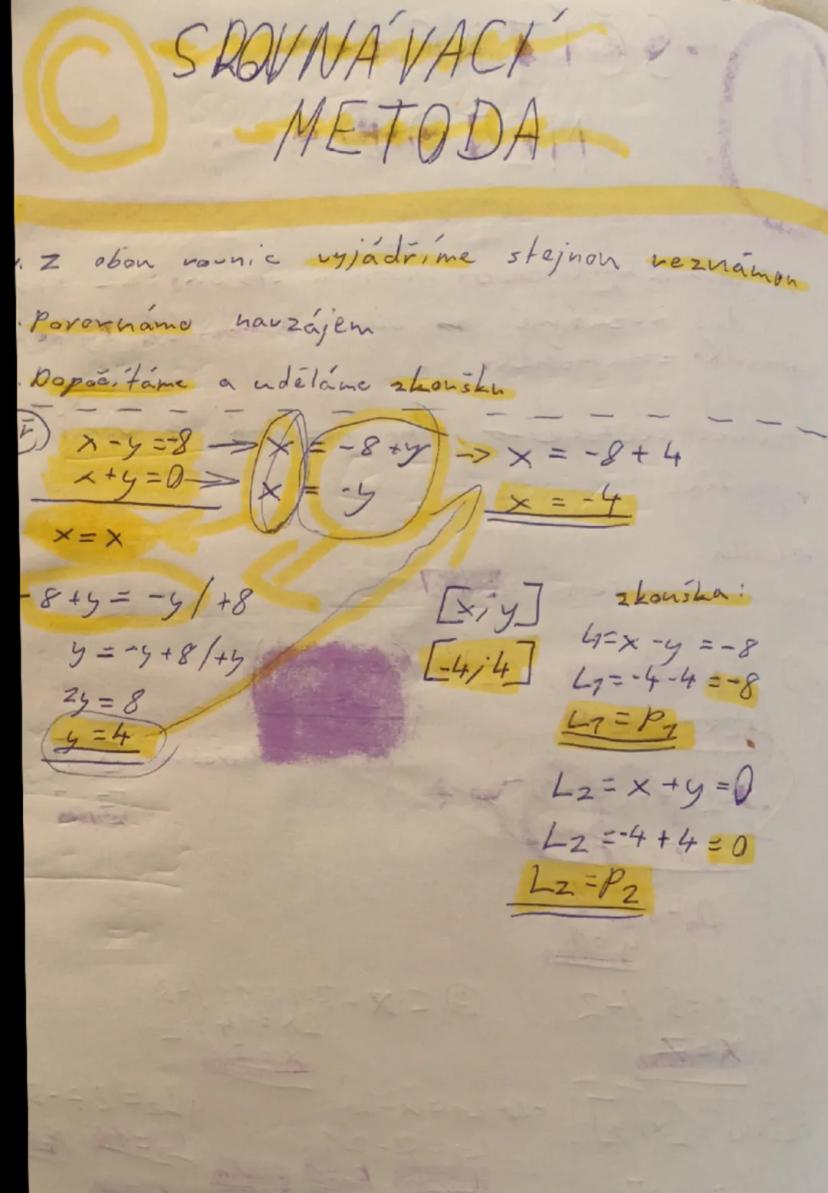 C
SROVNÁVACÍ
METODA
. Z obou rovnic vyjádříme stejnou neznámou
. Porovnámo navzájem
. Dopočítáme a uděláme zkoušku
x - y = -8 → x = -8 + y → x = -8 + 4
x + y = 0 → x = -y
x = -4
x = x
-8 + y = -y / +8
y = -y + 8 / +y
2y = 8
y = 4
[x; y]
[-4; 4]
zkouška:
L1 = x - y = -8
L1 = -4 - 4 = -8
L1 = P1
L2 = x + y = 0
L2 = -4 + 4 = 0
L2 = P2